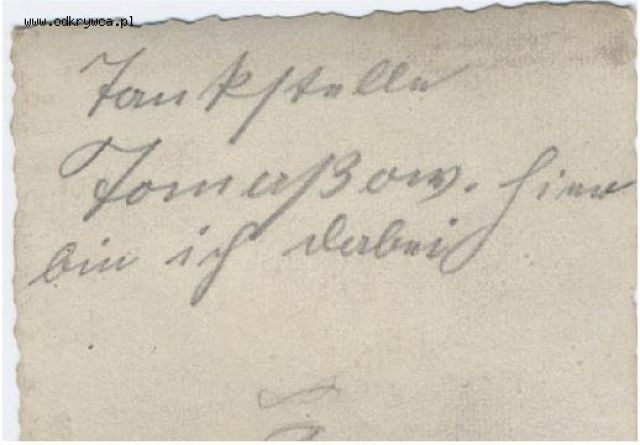 www.odkrywca.pl
Tankstelle
Tomaßow. hier
bin ich dabei